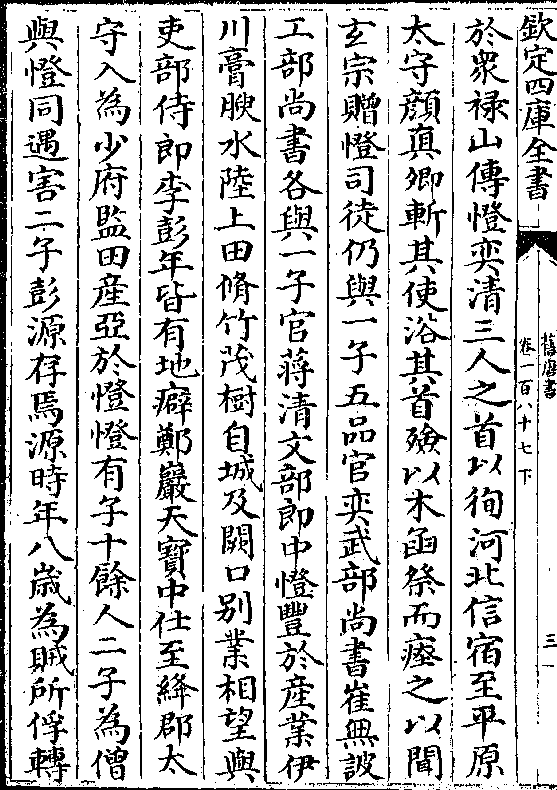 欽定四庫全書
舊唐書
卷一百八十七下
三
於衆禄山傳憕奕清三人之首以徇河北信宿至平原
太守顔真卿斬其使浴其首殮以木函祭而瘞之以聞
玄宗贈憕司徒仍與一子五品官奕武部尚書崔無詖
工部尚書各與一子官蔣清文部郎中憕豐於産業伊
川膏腴水陸上田脩竹茂樹自城及闕口别業相望與
吏部侍郎李彭年皆有地癖鄭巖天寶中仕至絳郡太
守入為少府監田産亞於憕憕有子十餘人二子為僧
與憕同遇害二子彭源存焉源時年八歲為賊所俘轉